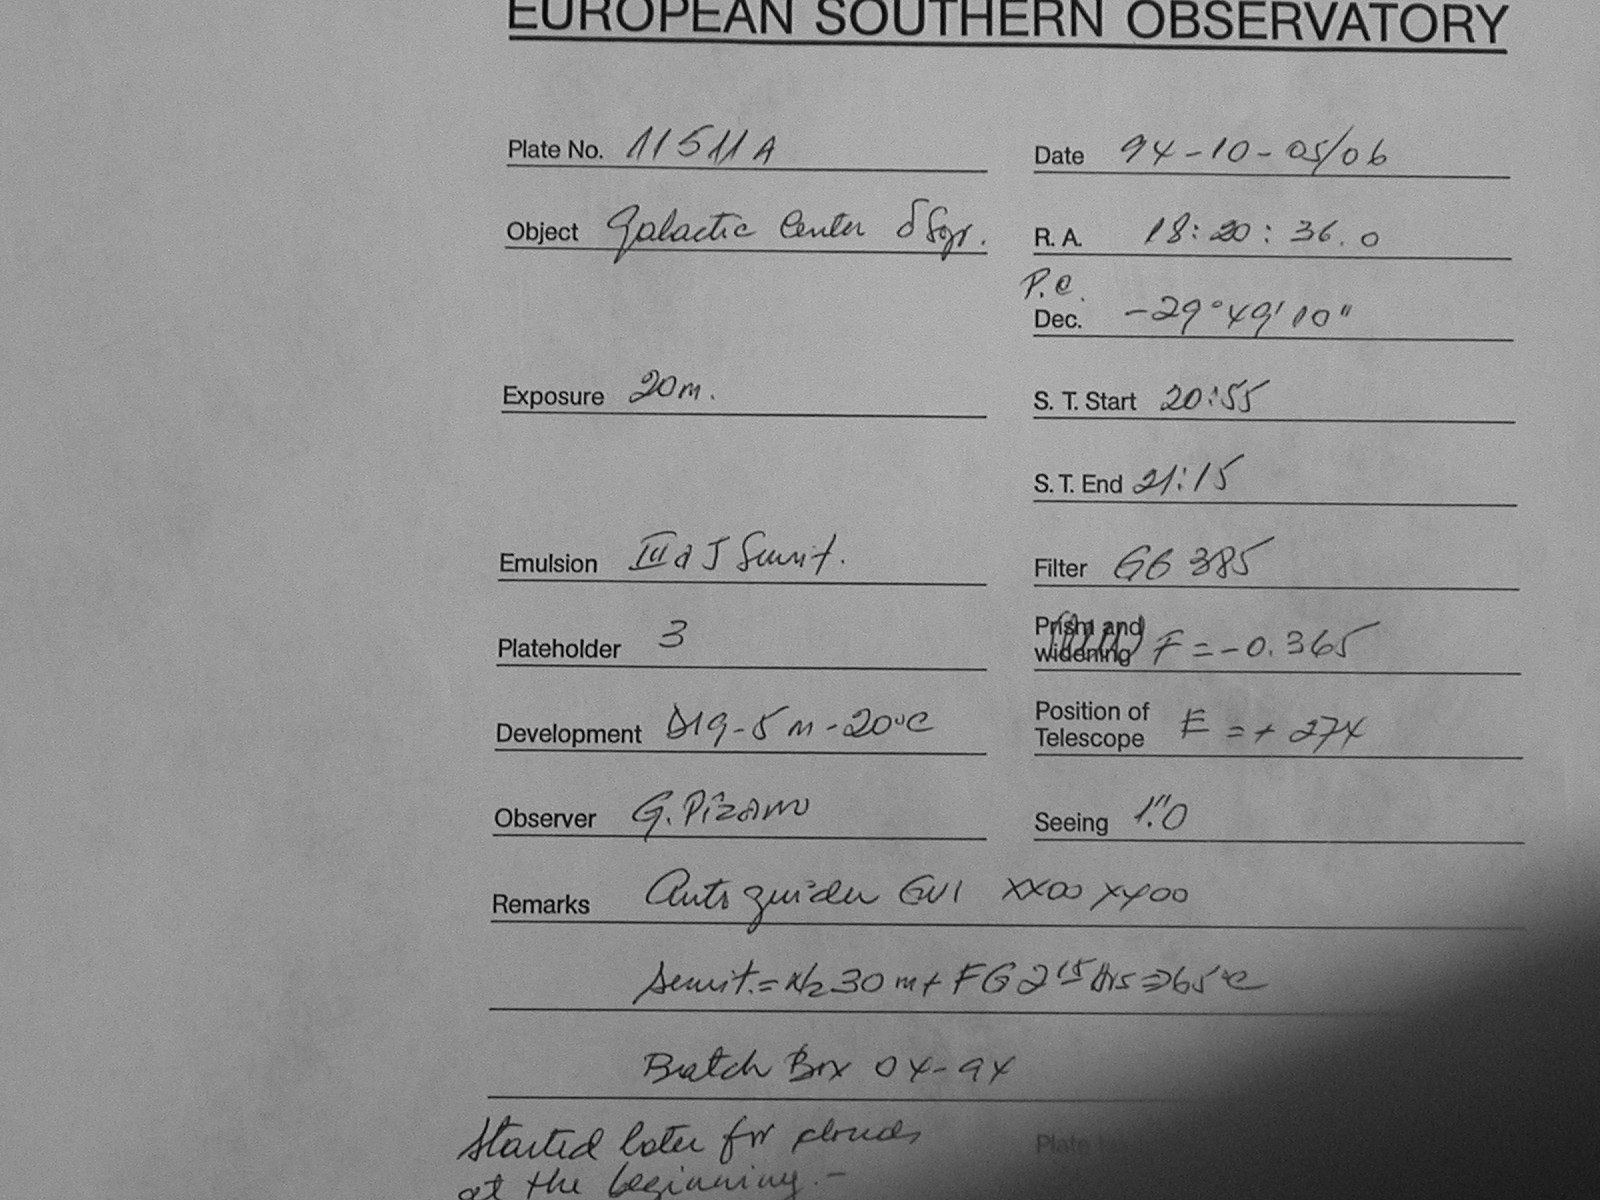 EUROPEAN SOUTHERN OBSERVATORY
Plate No. 11511A
Date 94-10-05/06
Object Galactic Center δ Sgr.
R. A. 18:20:36.0
P.C.
Dec. -29°49'10"
Exposure 20m.
S. T. Start 20:55
S. T. End 21:15
Emulsion IIIaJ Sensit.
Filter GG 385
Plateholder 3
Prism and widening F = -0.365
Development D19-5m-20°C
Position of Telescope E = + 274
Observer G. Pizarro
Seeing 1".0
Remarks Autoguider GV1 XX00 XY00
Sensit. = N2 30m + FG 2 15 Hrs => 65°C
Batch Box 04-94
Started later for clouds
at the beginning.-
Plate